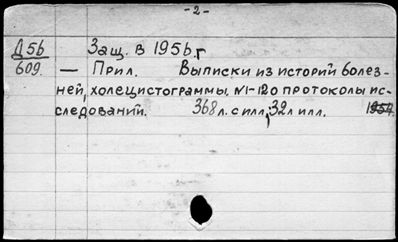 -2-
Д56 Защ. в 1956.г
609. — Прил. Выписки из историй болез-
ней, холецистограммы. №1-120 протоколы ис-
следований. 368л. с илл; 32л илл.